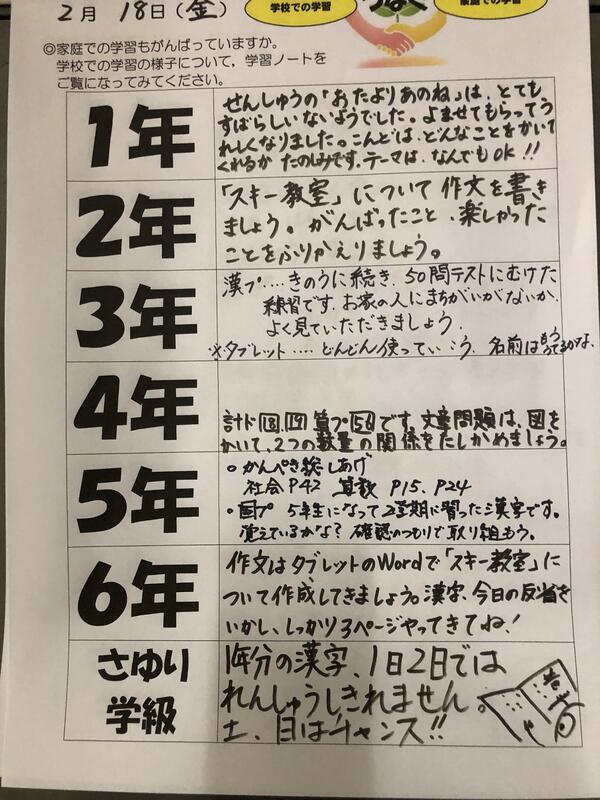 2月 18日(金)
学校での学習
家庭での学習
◎家庭での学習もがんばっていますか。
学校での学習の様子について，学習ノートを
ご覧になってみてください。
1年
せんしゅうの「おたよりあのね」は、とても
すばらしいないようでした。よませてもらってう
れしくなりました。こんどは、どんなことをかいて
くれるか たのしみです。テーマは、なんでもOK!!
2年
「スキー教室」について作文を書き
ましょう。がんばったこと、楽しかった
ことをふりかえりましょう。
3年
漢プ‥‥きのうに続き、50問テストにむけた
練習です。お家の人にまちがいがないか、
よく見ていただきましょう。
※タブレット‥‥どんどん使っていこう。名前はもう
4年
計ド18、19 算プ56です。文章問題は、図を
かいて、2つの数量の関係をたしかめましょう。
5年
○かんぺき総しあげ
社会P42 算数 P15、P24
・国プ 5年生になって2学期に習った漢字です。
覚えているかな? 確認のつもりで取り組もう。
6年
作文はタブレットのWordで「スキー教室」に
ついて作成してきましょう。漢字、今日の反省を
いかし、しっかり3ページやってきてね!
さゆり
学級
1年分の漢字、1日2日では
れんしゅうしきれません。
土、日はチャンス!!